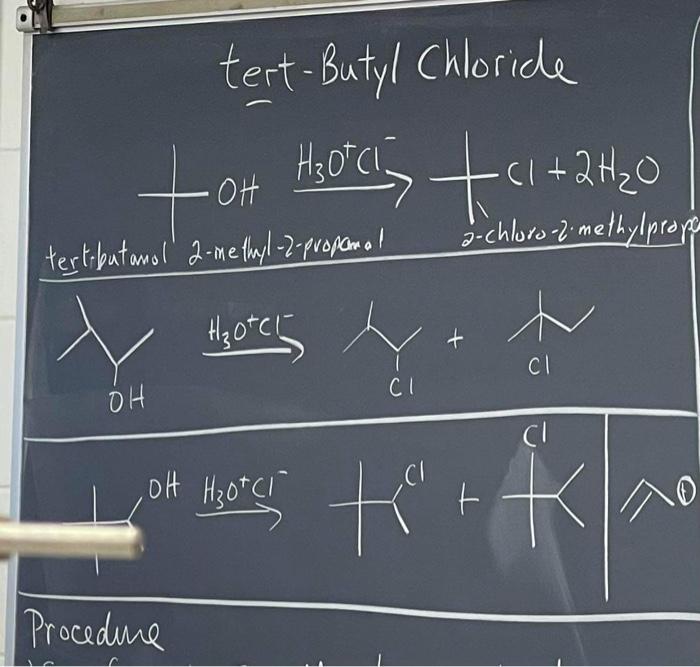 tert-Butyl Chloride
OH H₃O⁺Cl⁻ Cl + 2H₂O
tert-butanol 2-methyl-2-propanol 2-chloro-2-methylprop
H₃O⁺Cl⁻ +
OH Cl Cl
Cl
OH H₃O⁺Cl⁻ Cl + ⊕
Procedure